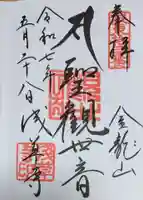 奉拝
金龍山
聖観世音
令和七年
五月二十八日
浅草寺